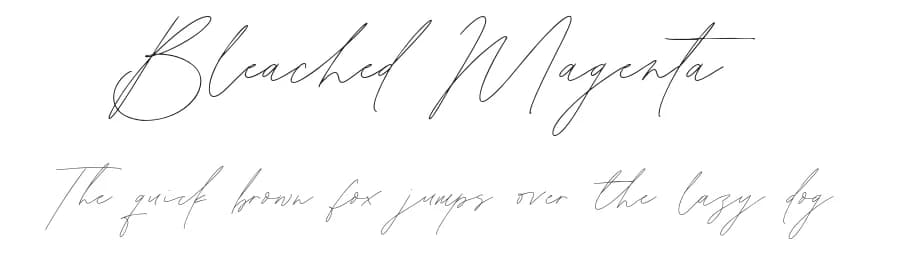 Bleached Magenta
The quick brown fox jumps over the lazy dog